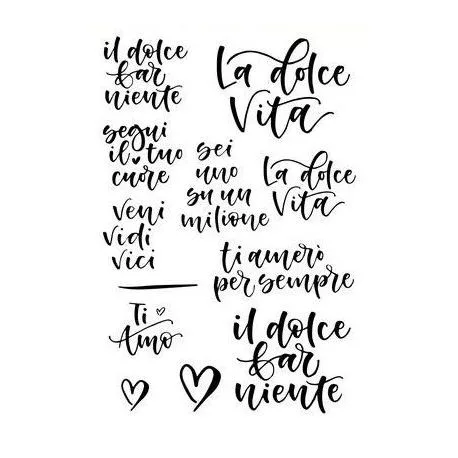 il dolce
far
niente
La dolce
Vita
segui
il tuo
cuore
sei
uno
su un
milione
La dolce
Vita
veni
vidi
vici
ti amerò
per sempre
Ti
Amo
il dolce
far
niente